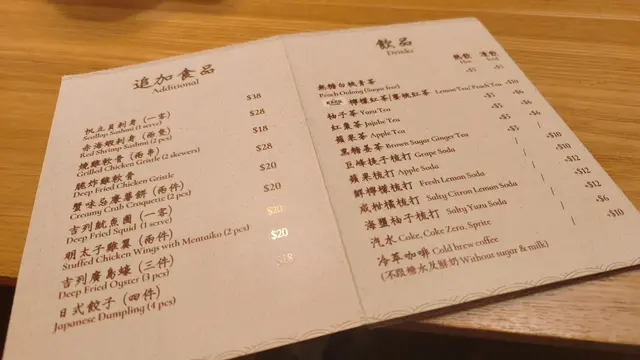 追加食品
Additional
帆立貝刺身（一客） $38
Scallop Sashmi (1 serve)
赤海蝦刺身（兩隻） $28
Red Shrimp Sashmi (2 pcs)
燒雞軟骨（兩串） $18
Grilled Chicken Gristle (2 skewers)
脆炸雞軟骨 $28
Deep Fried Chicken Gristle
蟹味忌廉薯餅（兩件） $20
Creamy Crab Croquette (2 pcs)
吉列魷魚圈（一客） $20
Deep Fried Squid (1 serve)
明太子雞翼（兩件） $20
Stuffed Chicken Wings with Mentaiko (2 pcs)
吉列廣島蠔（三件） $20
Deep Fried Oyster (3 pcs)
日式餃子（四件） $18
Japanese Dumpling (4 pcs)
飲品
Drinks
熱飲 凍飲
Hot Iced
無糖白桃青茶 -$5 -$5
Peach Oolong (Sugar free)
檸檬紅茶|蜜桃紅茶 Lemon Tea/ Peach Tea
柚子茶 Yuzu Tea
紅棗茶 Jujube Tea
蘋果茶 Apple Tea
黑糖薑茶 Brown Sugar Ginger Tea
巨峰梳打 Grape Soda
蘋果梳打 Apple Soda
鮮檸檬梳打 Fresh Lemon Soda
咸柑橘梳打 Salty Citron Lemon Soda
海鹽柚子梳打 Salty Yuzu Soda
汽水 Coke, Coke Zero, Sprite
冷萃咖啡 Cold brew coffee
(不跟糖水及鮮奶 Without sugar & milk)